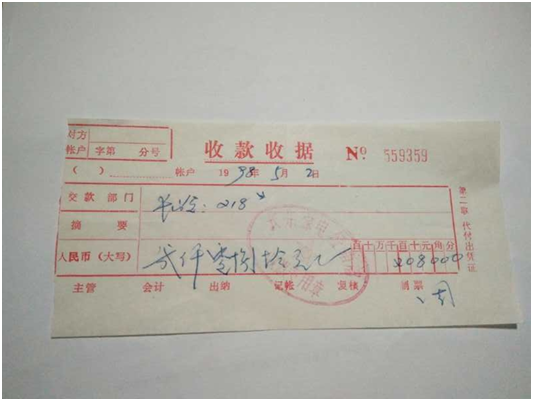 对方
帐户 字第 分号
收款收据 № 559359
( ) 帐户 1998年5月2日
交款部门
218
摘要
百十万千百十元角分
人民币(大写) 贰仟零捌拾元
208000
主管 会计 出纳 记帐 复核 制票
周
第二联 代付出凭证